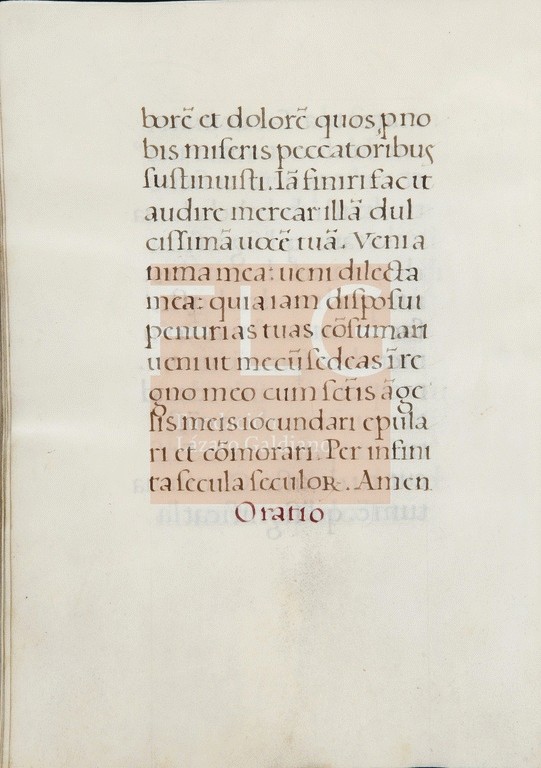 borē et dolorē quos p no
bis miseris peccatoribus
sustinuisti. Iā finiri facit
audire mercar illā dul
cissimā uocē tuā. Veni a
nima mea: ueni dilecta
mea: quia iam disposui
penurias tuas cōsumari
ueni ut mecū sedeas ī re
gno meo cum sctīs āge
lis meis iocundari epula
ri et cōmorari. Per infini
ta secula seculoꝝ. Amen
Oratio
FLG
Fundación
Lázaro Galdiano